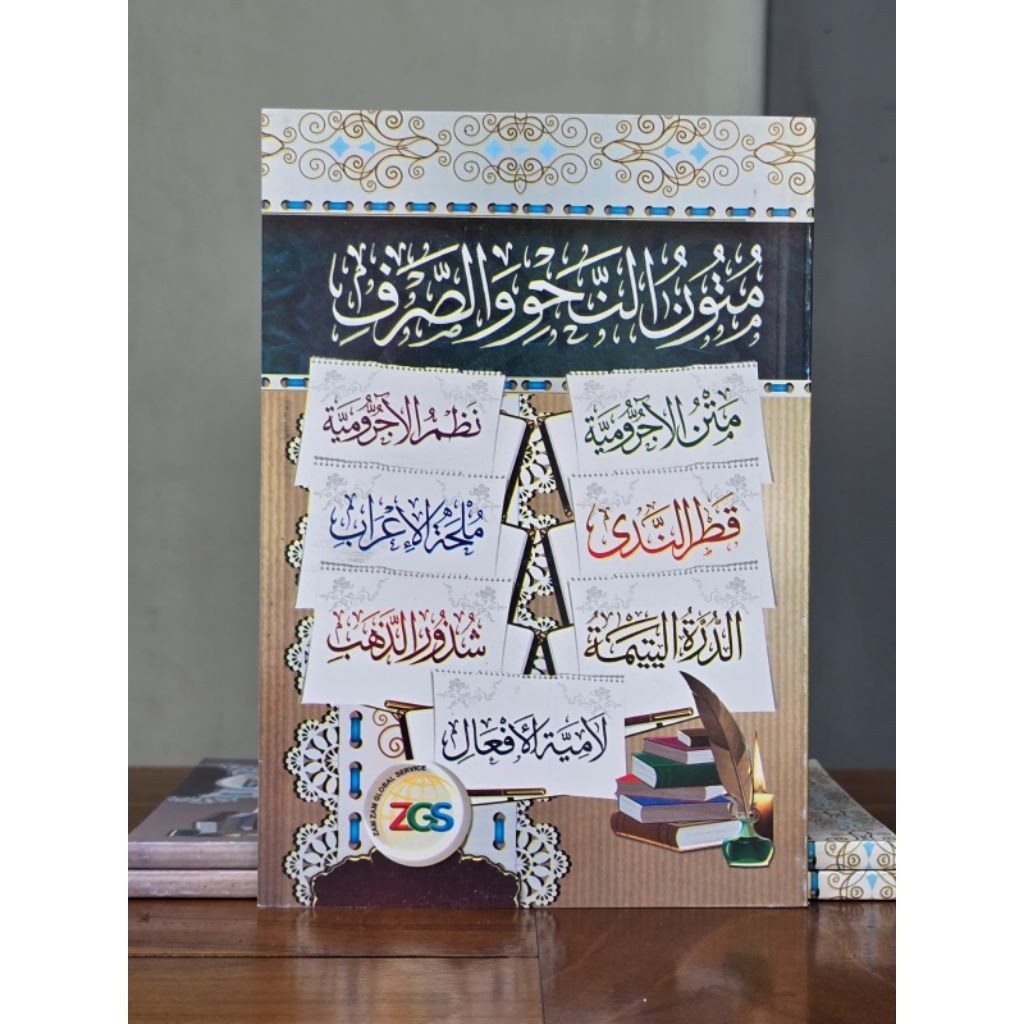 مُتُونُ النَّحْوِ وَالصَّرْفِ
مَتْنُ الْآجُرُّومِيَّة
نَظْمُ الْآجُرُّومِيَّة
قَطْرُ النَّدَى
مُلْحَةُ الْإِعْرَابِ
الدُّرَّةُ الْيَتِيمَةُ
شُذُورُ الذَّهَبِ
لَامِيَّةُ الْأَفْعَالِ
ZAM ZAM GLOBAL SERVICE
ZGS